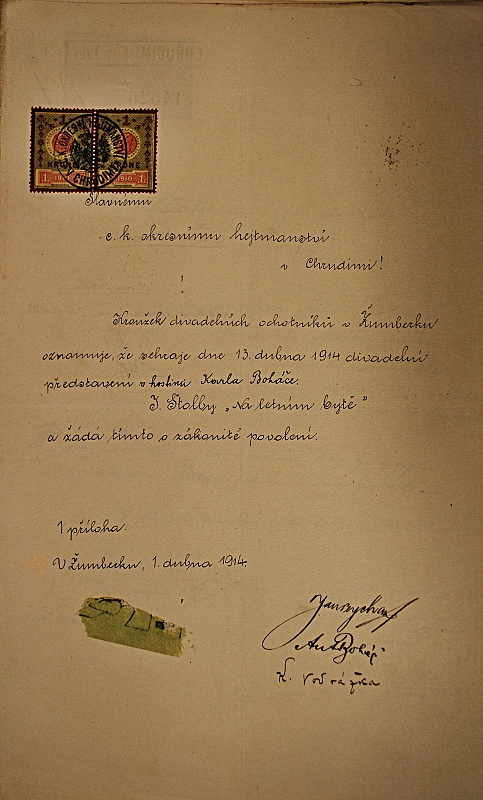 1 1
KRONE
1. 1910 1910 1.
Slavnému
c. k. okresnímu hejtmanství
v Chrudimi!
Kroužek divadelních ochotníků v Žumberku
oznamuje, že sehraje dne 13. dubna 1914 divadelní
představení v hostinci Karla Boháče.
J. Štolby „Na letním bytě"
a žádá tímto o zákonité povolení.
1 příloha.
V Žumberku, 1. dubna 1914.
Ant. Boháč
K. Vodrážka